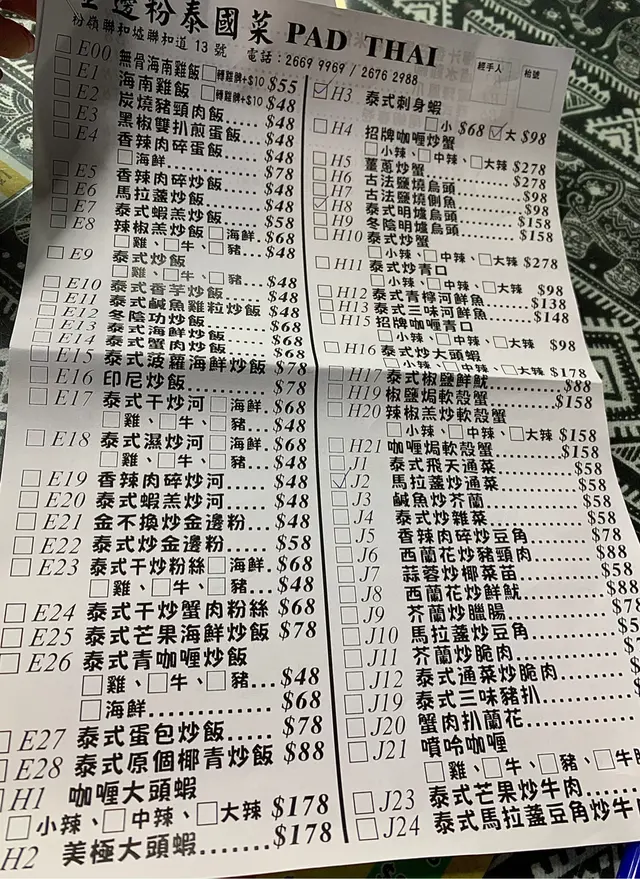 邊粉泰國菜 PAD THAI
粉嶺聯和墟聯和道 13 號 電話:2669 9969 / 2676 2988
經手人
枱號
E00 無骨海南雞飯 □轉雞髀+$10 $55
E1 海南雞飯 □轉雞髀+$10 $48
E2 炭燒豬頸肉飯 $48
E3 黑椒雙扒煎蛋飯 $48
E4 香辣肉碎蛋飯 $48
□海鮮 $78
E5 香辣肉碎炒飯 $48
E6 馬拉盞炒飯 $48
E7 泰式蝦羔炒飯 $58
E8 辣椒羔炒飯 □海鮮 $68
□雞、□牛、□豬 $48
E9 泰式炒飯
□雞、□牛、□豬 $48
E10 泰式香芋炒飯 $48
E11 泰式鹹魚雞粒炒飯 $48
E12 冬陰功炒飯 $68
E13 泰式海鮮炒飯 $68
E14 泰式蟹肉炒飯 $68
E15 泰式菠蘿海鮮炒飯 $78
E16 印尼炒飯 $78
E17 泰式干炒河 □海鮮 $68
□雞、□牛、□豬 $48
E18 泰式濕炒河 □海鮮 $68
□雞、□牛、□豬 $48
E19 香辣肉碎炒河 $48
E20 泰式蝦羔炒河 $48
E21 金不換炒金邊粉 $48
E22 泰式炒金邊粉 $58
E23 泰式干炒粉絲 □海鮮 $68
□雞、□牛、□豬 $48
E24 泰式干炒蟹肉粉絲 $68
E25 泰式芒果海鮮炒飯 $78
E26 泰式青咖喱炒飯
□雞、□牛、□豬 $48
□海鮮 $68
E27 泰式蛋包炒飯 $78
E28 泰式原個椰青炒飯 $88
H1 咖喱大頭蝦
□小辣、□中辣、□大辣 $178
H2 美極大頭蝦 $178
☑ H3 泰式刺身蝦
□小 $68 ☑大 $98
H4 招牌咖喱炒蟹
□小辣、□中辣、□大辣 $278
H5 薑蔥炒蟹 $278
H6 古法鹽燒烏頭 $98
H7 古法鹽燒側魚 $98
☑ H8 泰式明爐烏頭 $158
H9 冬陰明爐烏頭 $158
H10 泰式炒蟹
□小辣、□中辣、□大辣 $278
H11 泰式炒青口
□小辣、□中辣、□大辣 $98
H12 泰式青檸河鮮魚 $138
H13 泰式三味河鮮魚 $148
H15 招牌咖喱青口
□小辣、□中辣、□大辣 $98
H16 泰式炒大頭蝦
□小辣、□中辣、□大辣 $178
H17 泰式椒鹽鮮魷 $88
H19 椒鹽焗軟殼蟹 $158
H20 辣椒羔炒軟殼蟹
□小辣、□中辣、□大辣 $158
H21 咖喱焗軟殼蟹 $158
J1 泰式飛天通菜 $58
☑ J2 馬拉盞炒通菜 $58
J3 鹹魚炒芥蘭 $58
J4 泰式炒雜菜 $58
J5 香辣肉碎炒豆角 $78
J6 西蘭花炒豬頸肉 $88
J7 蒜蓉炒椰菜苗 $58
J8 西蘭花炒鮮魷 $88
J9 芥蘭炒臘腸
J10 馬拉盞炒豆角
J11 芥蘭炒脆肉
J12 泰式通菜炒脆肉
J19 泰式三味豬扒
J20 蟹肉扒蘭花
J21 噴呤咖喱
□雞、□牛、□豬、□牛
J23 泰式芒果炒牛肉
J24 泰式馬拉盞豆角炒牛